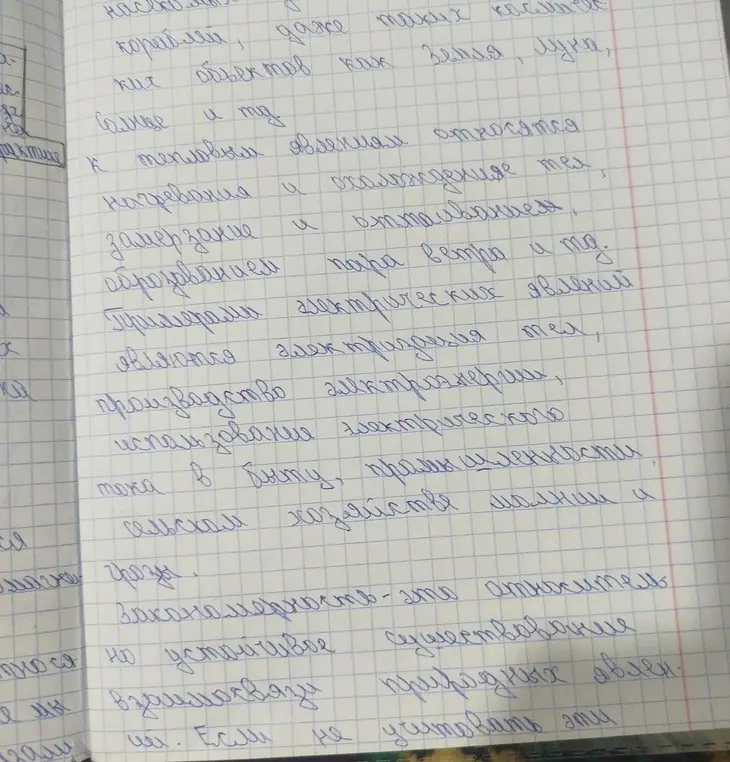 кораблей, даже таких космичес
ких объектов как Земля, Луна,
Солнце и тд
к тепловым явлениям относятся
нагревания и охлождение тел,
замерзание и оттаиванием,
образованием пара ветра и тд.
Примерами электрических явлений
являются электризация тел,
производство электроэнергии,
использование электрического
тока в быту, промышленности,
сельском хозяйстве молнии и
грозы.
Закономерность - это относитель
но устойчивое существование
взаимосвязи природных явлен-
ии. Если не учитовать эти